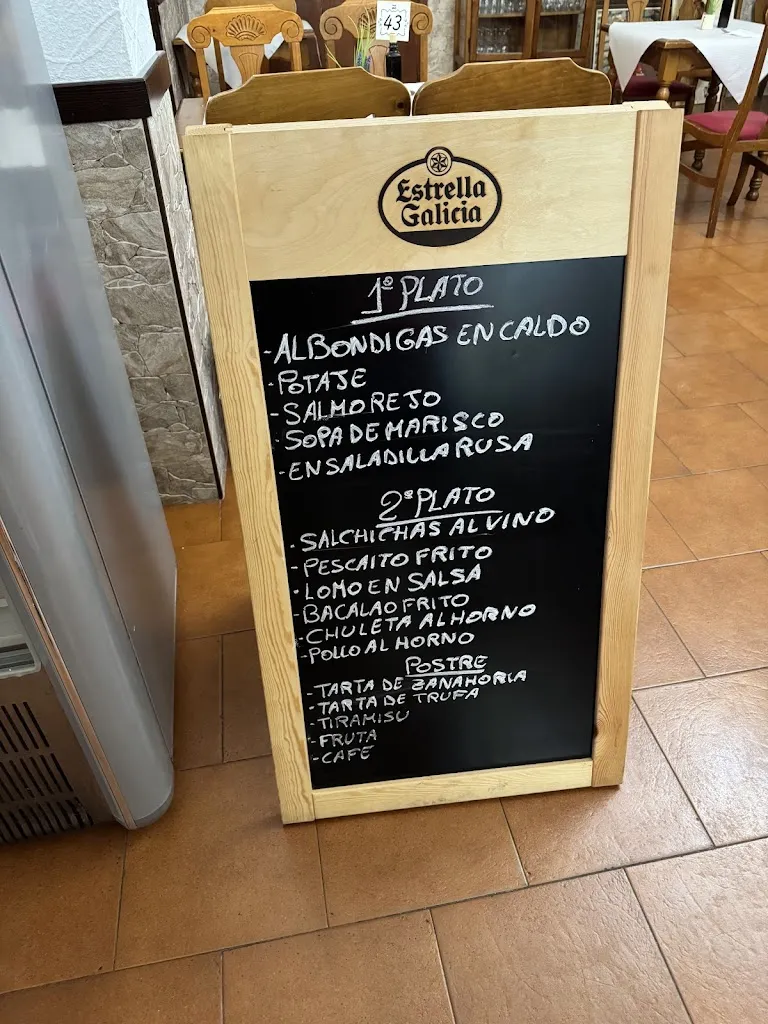 43
Estrella
Galicia
1º PLATO
-ALBONDIGAS EN CALDO
-POTAJE
-SALMOREJO
-SOPA DE MARISCO
-ENSALADILLA RUSA
2º PLATO
-SALCHICHAS AL VINO
-PESCAITO FRITO
-LOMO EN SALSA
-BACALAO FRITO
-CHULETA AL HORNO
-POLLO AL HORNO
POSTRE
-TARTA DE ZANAHORIA
-TARTA DE TRUFA
-TIRAMISU
-FRUTA
-CAFE